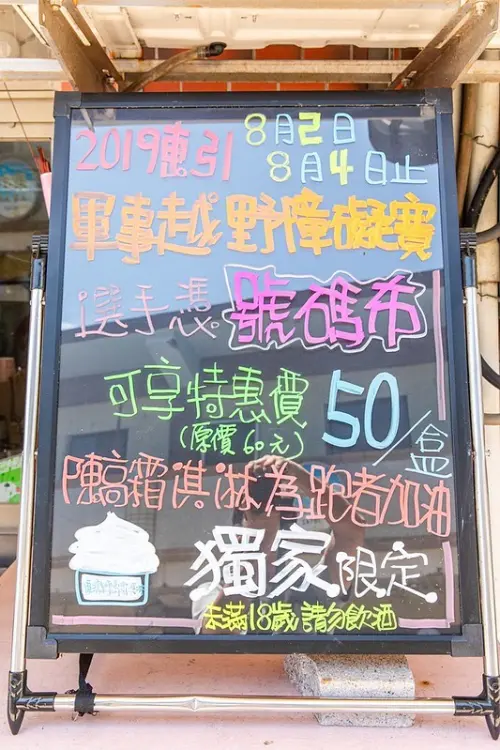 2019東引 8月2日
8月4日止
軍事越野障礙賽
選手憑號碼布
可享特惠價50/盒
(原價60元)
陳高霜淇淋為跑者加油
獨家限定
未滿18歲請勿飲酒